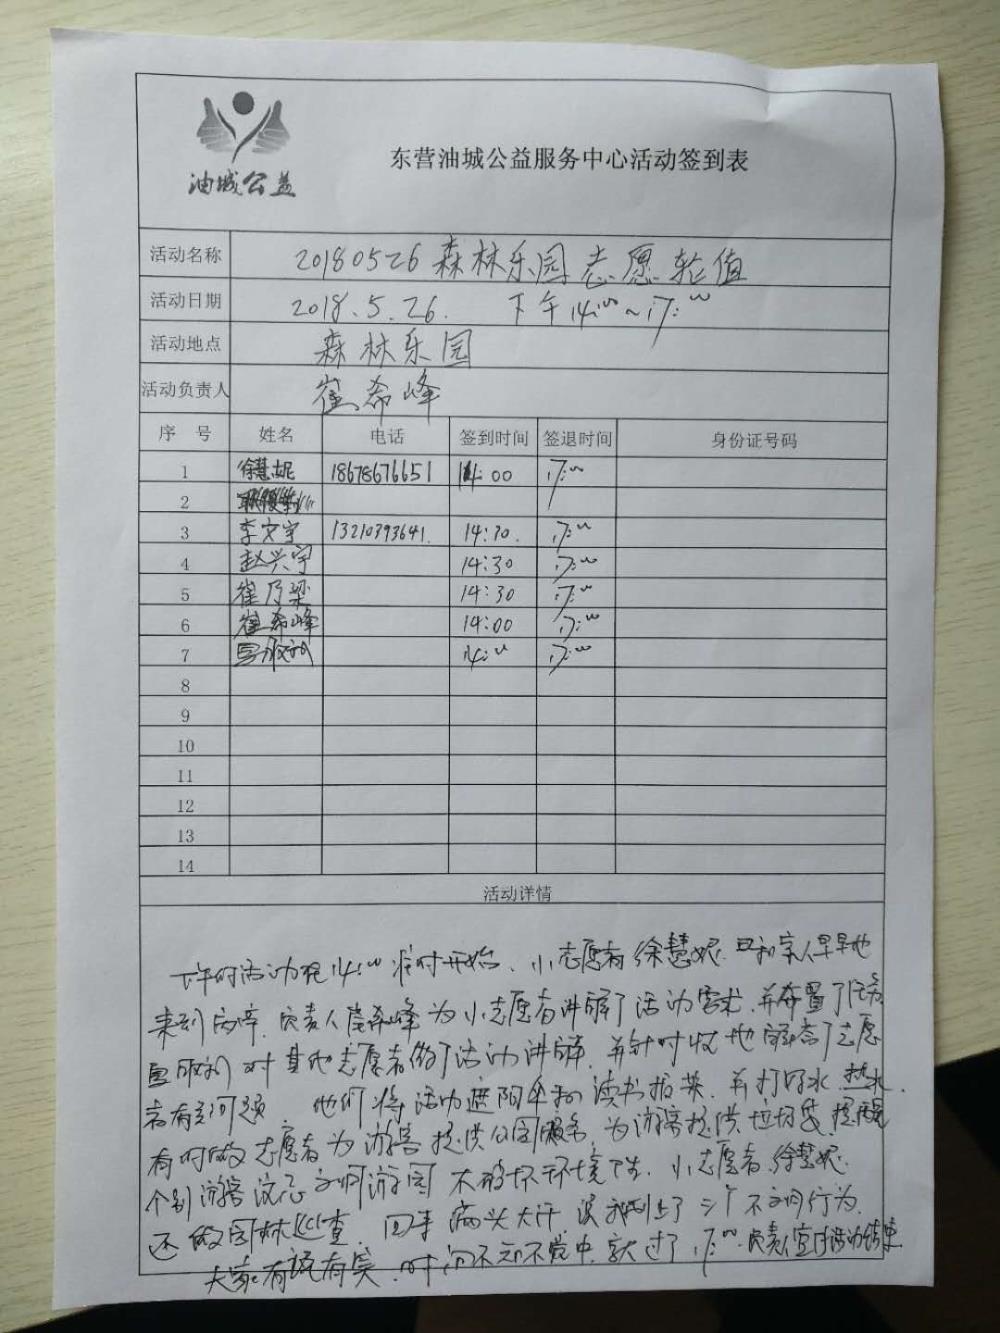 油城公益
东营油城公益服务中心活动签到表
活动名称 20180526森林乐园志愿轮值
活动日期 2018.5.26. 下午14:00~17:00
活动地点 森林乐园
活动负责人 崔希峰
序号 姓名 电话 签到时间 签退时间 身份证号码
1 徐慧妮 18678676651 14:00 17:00
2
3 李文宇 13210393641. 14:30. 17:00
4 赵兴宇 14:30 17:00
5 崔乃梁 14:30 17:00
6 崔希峰 14:00 17:00
7 14:00 17:00
8
9
10
11
12
13
14
活动详情
下午的活动现14:00准时开始、小志愿者徐慧妮 和家人早早地
来到 负责人崔希峰为小志愿者讲解了活动需求,并布置了任务
对其他志愿者做了活动讲解,并针对性地解答了志愿
者有关问题. 他们将活动遮阳伞和读书报架 并打好水 热水.
有时做志愿者为游客提供公园服务,为游客提供垃圾袋,提醒
个别游客注意文明游园 不破坏环境卫生. 小志愿者徐慧妮
还做园林巡查. 回来满头大汗,说我制止了三个不文明行为.
大家有说有笑.时间不知不觉中,就过了17:00.负责人宣布活动结束